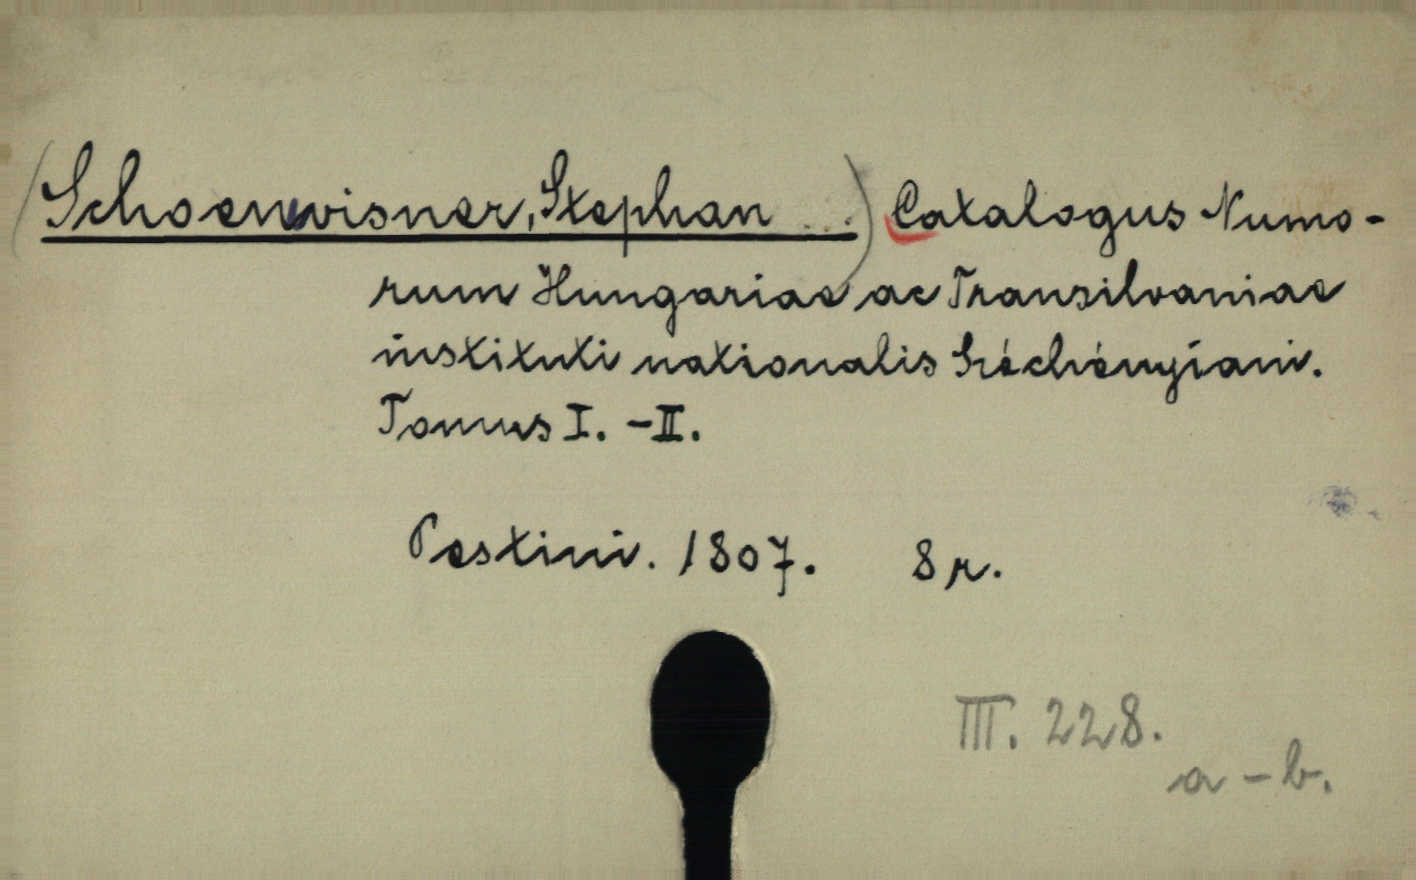 (Schoenwisner, Stephan ...) Catalogus Numo-
rum Hungariae ac Transilvaniae
instituti nationalis Széchényiani.
Tomus I. - II.
Pestini. 1807. 8r.
III. 228.
a - b.